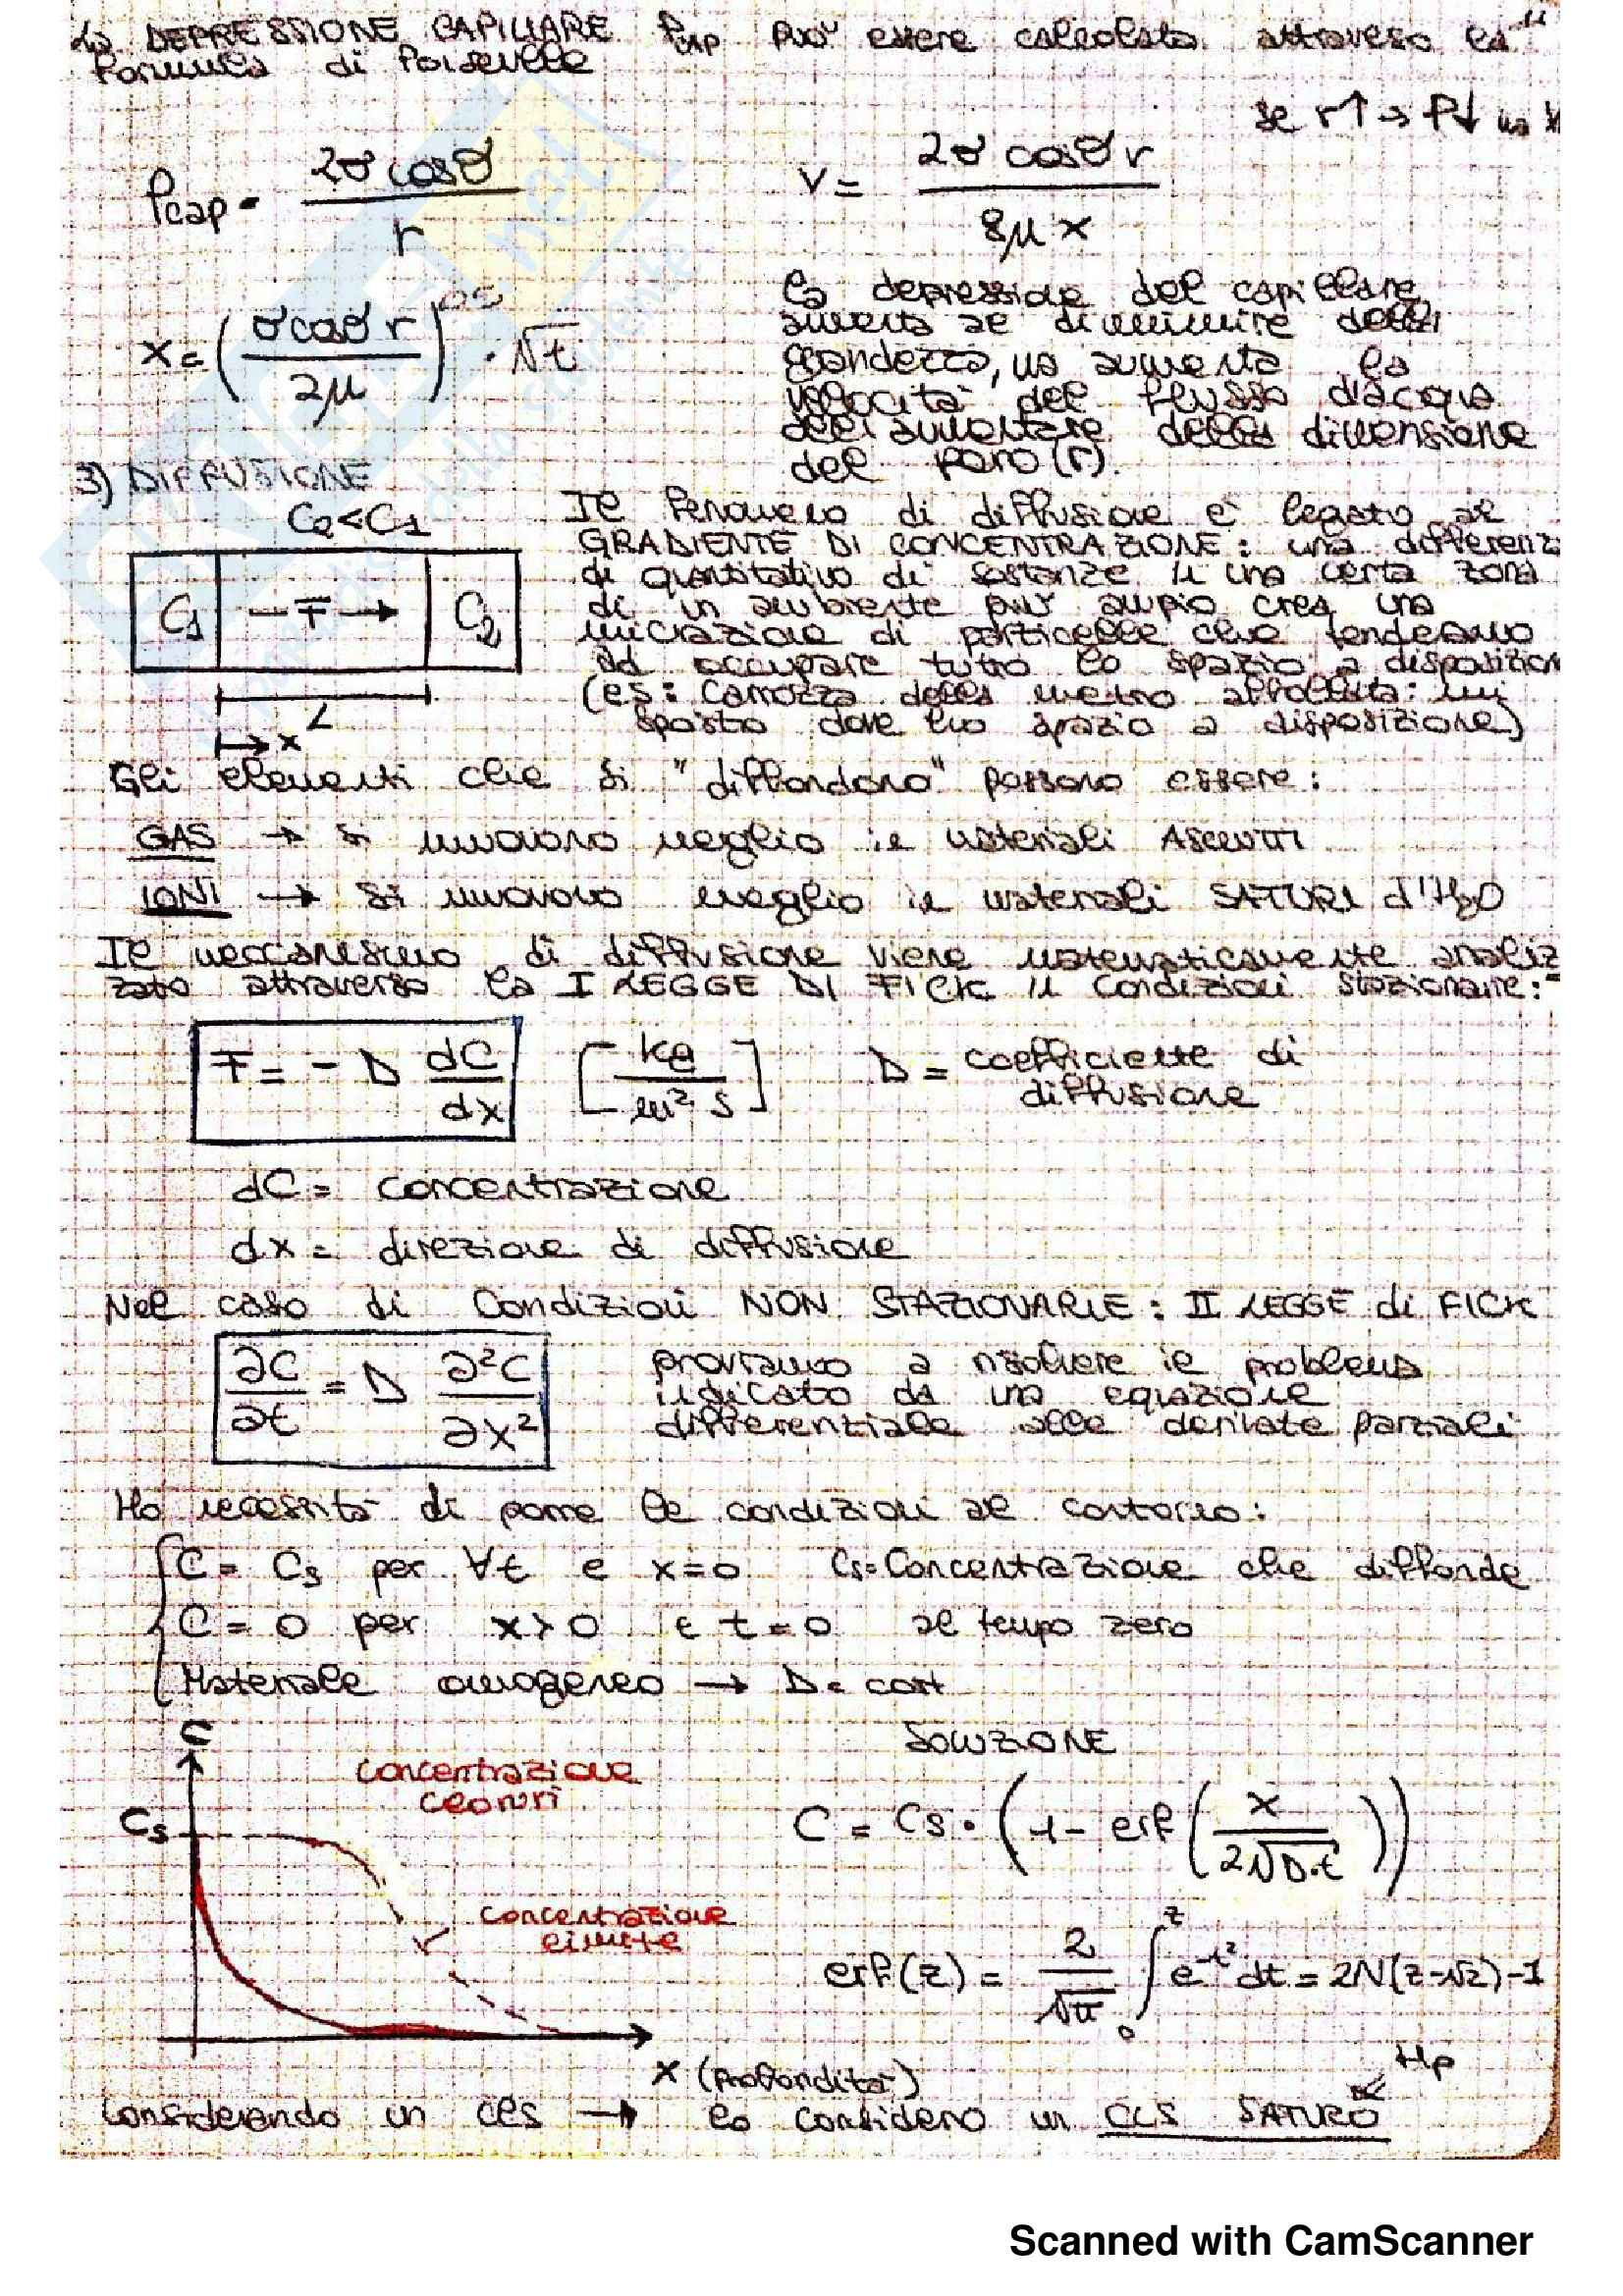 La DEPRESSIONE CAPILLARE Pcap può essere calcolata attraverso la
formula di Poiseuille
se r↑ → P↓ ma v
Pcap = 2σ cosθ / r
v = 2σ cosθ r / 8μ x
x = (σ cosθ r / 2μ)^0.5 · √t
la depressione del capillare
aumenta al diminuire della
grandezza, ma aumenta la
velocità del flusso d'acqua
all'aumentare della dimensione
del poro (r).
3) DIFFUSIONE
C2<C1
C1 — F → C2
L
x
Il fenomeno di diffusione è legato al
GRADIENTE DI CONCENTRAZIONE: una differenz
di quantitativo di sostanze in una certa zona
di un ambiente più ampio crea una
migrazione di particelle che tenderanno
ad occupare tutto lo spazio a disposizion
(es: carrozza della metro affollata: mi
sposto dove ho spazio a disposizione)
Gli elementi che si "diffondono" possono essere:
GAS → si muovono meglio in materiali ASCIUTTI
IONI → si muovono meglio in materiali SATURI d'H2O
Il meccanismo di diffusione viene matematicamente analiz
zato attraverso la I LEGGE DI FICK in condizioni stazionarie:
F = - D dC/dx [kg / m² s] D = coefficiente di
diffusione
dC = concentrazione
dx = direzione di diffusione
Nel caso di condizioni NON STAZIONARIE: II LEGGE di FICK
∂C/∂t = D ∂²C/∂x²
proviamo a risolvere il problema
indicato da una equazione
differenziale alle derivate parziali
Ho necessità di porre le condizioni al contorno:
C = Cs per ∀t e x=0 Cs=Concentrazione che diffonde
C = 0 per x>0 e t=0 al tempo zero
Materiale omogeneo → D = cost
C
Concentrazione
cloruri
Cs
concentrazione
limite
x (profondità)
SOLUZIONE
C = Cs · (1 - erf (x / 2√D·t))
erf(z) = 2/√π ∫₀^z e^-t² dt = 2N(z·√2)-1
Hp
Considerando un cls → lo considero un CLS SATURO
Scanned with CamScanner